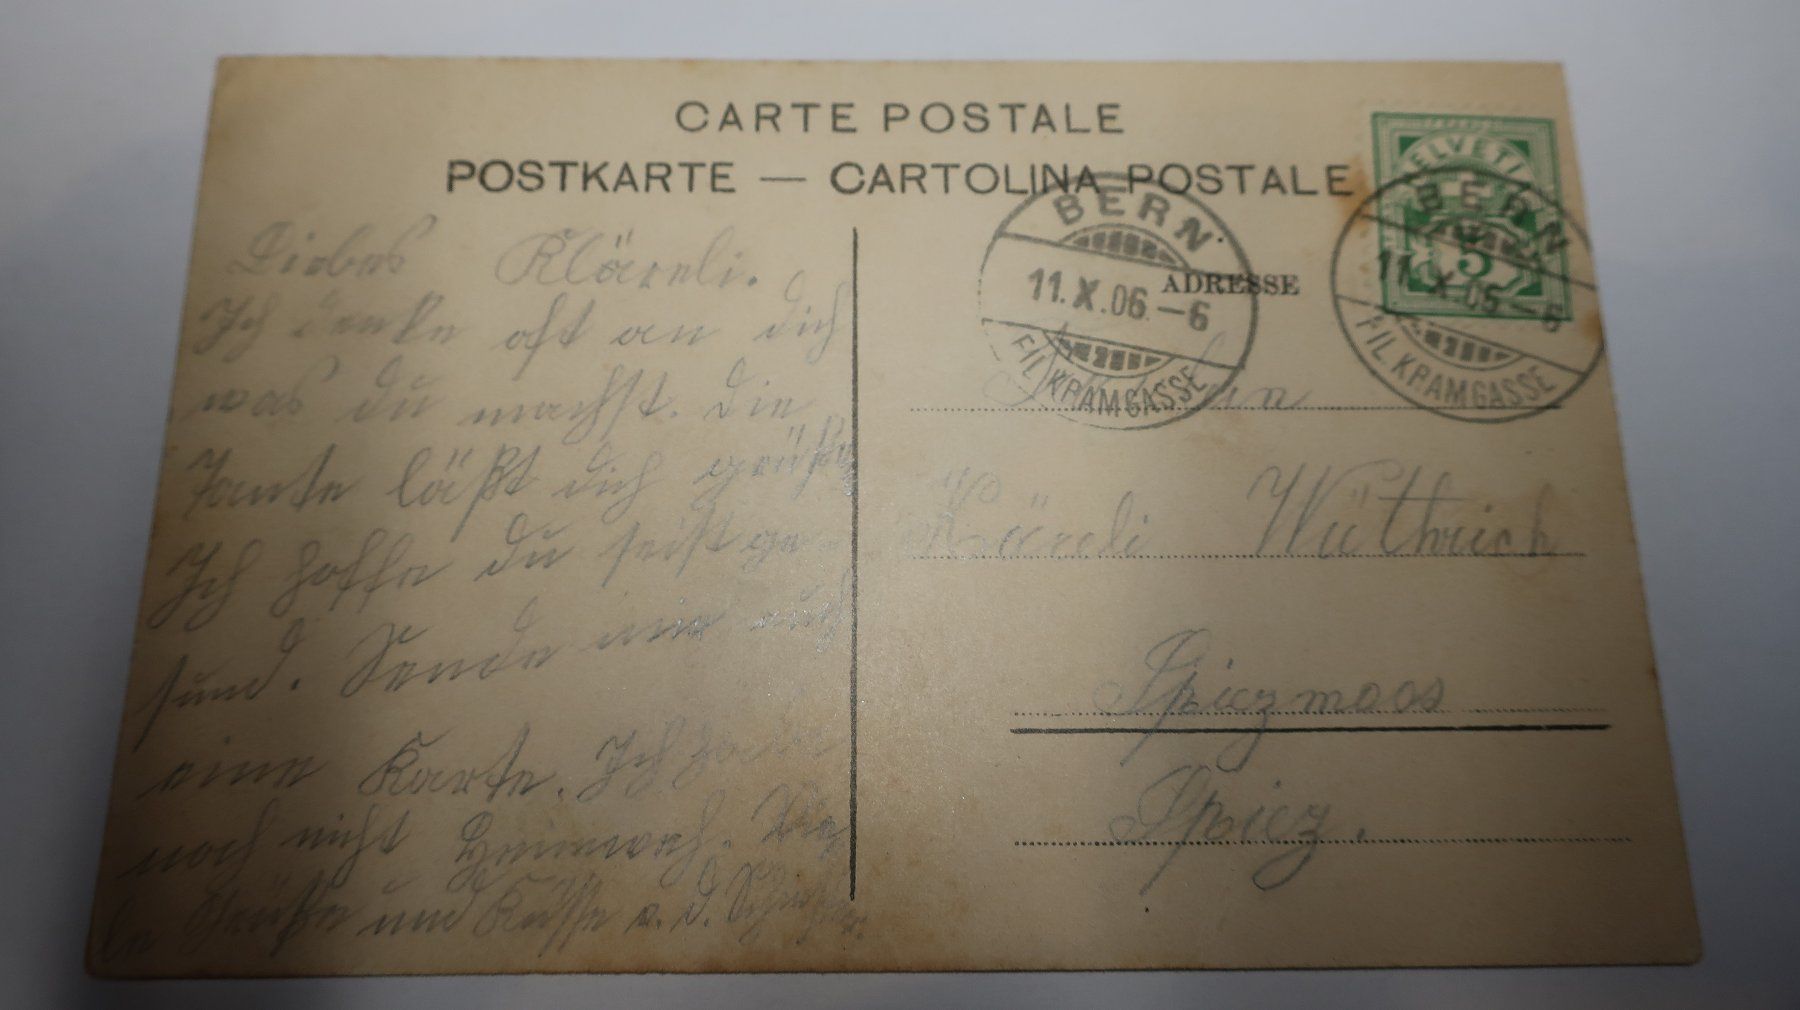 CARTE POSTALE
POSTKARTE — CARTOLINA POSTALE
HELVETIA
5
BERN
11.X.06.–6
FIL. KRAMGASSE
BERN
11.X.06–6
FIL. KRAMGASSE
ADRESSE
Liebes Kläreli.
Ich denke oft an dich
was du machst. Die
Tante läßt dich grüßen
Ich hoffe du seist ge-
sund. Sende mir auch
eine Karte. Ich habe
noch nicht Heimweh. Vie
le Grüße und Küsse v. d. Schwester.
Kläreli Wüthrich
Spiezmoos
Spiez.